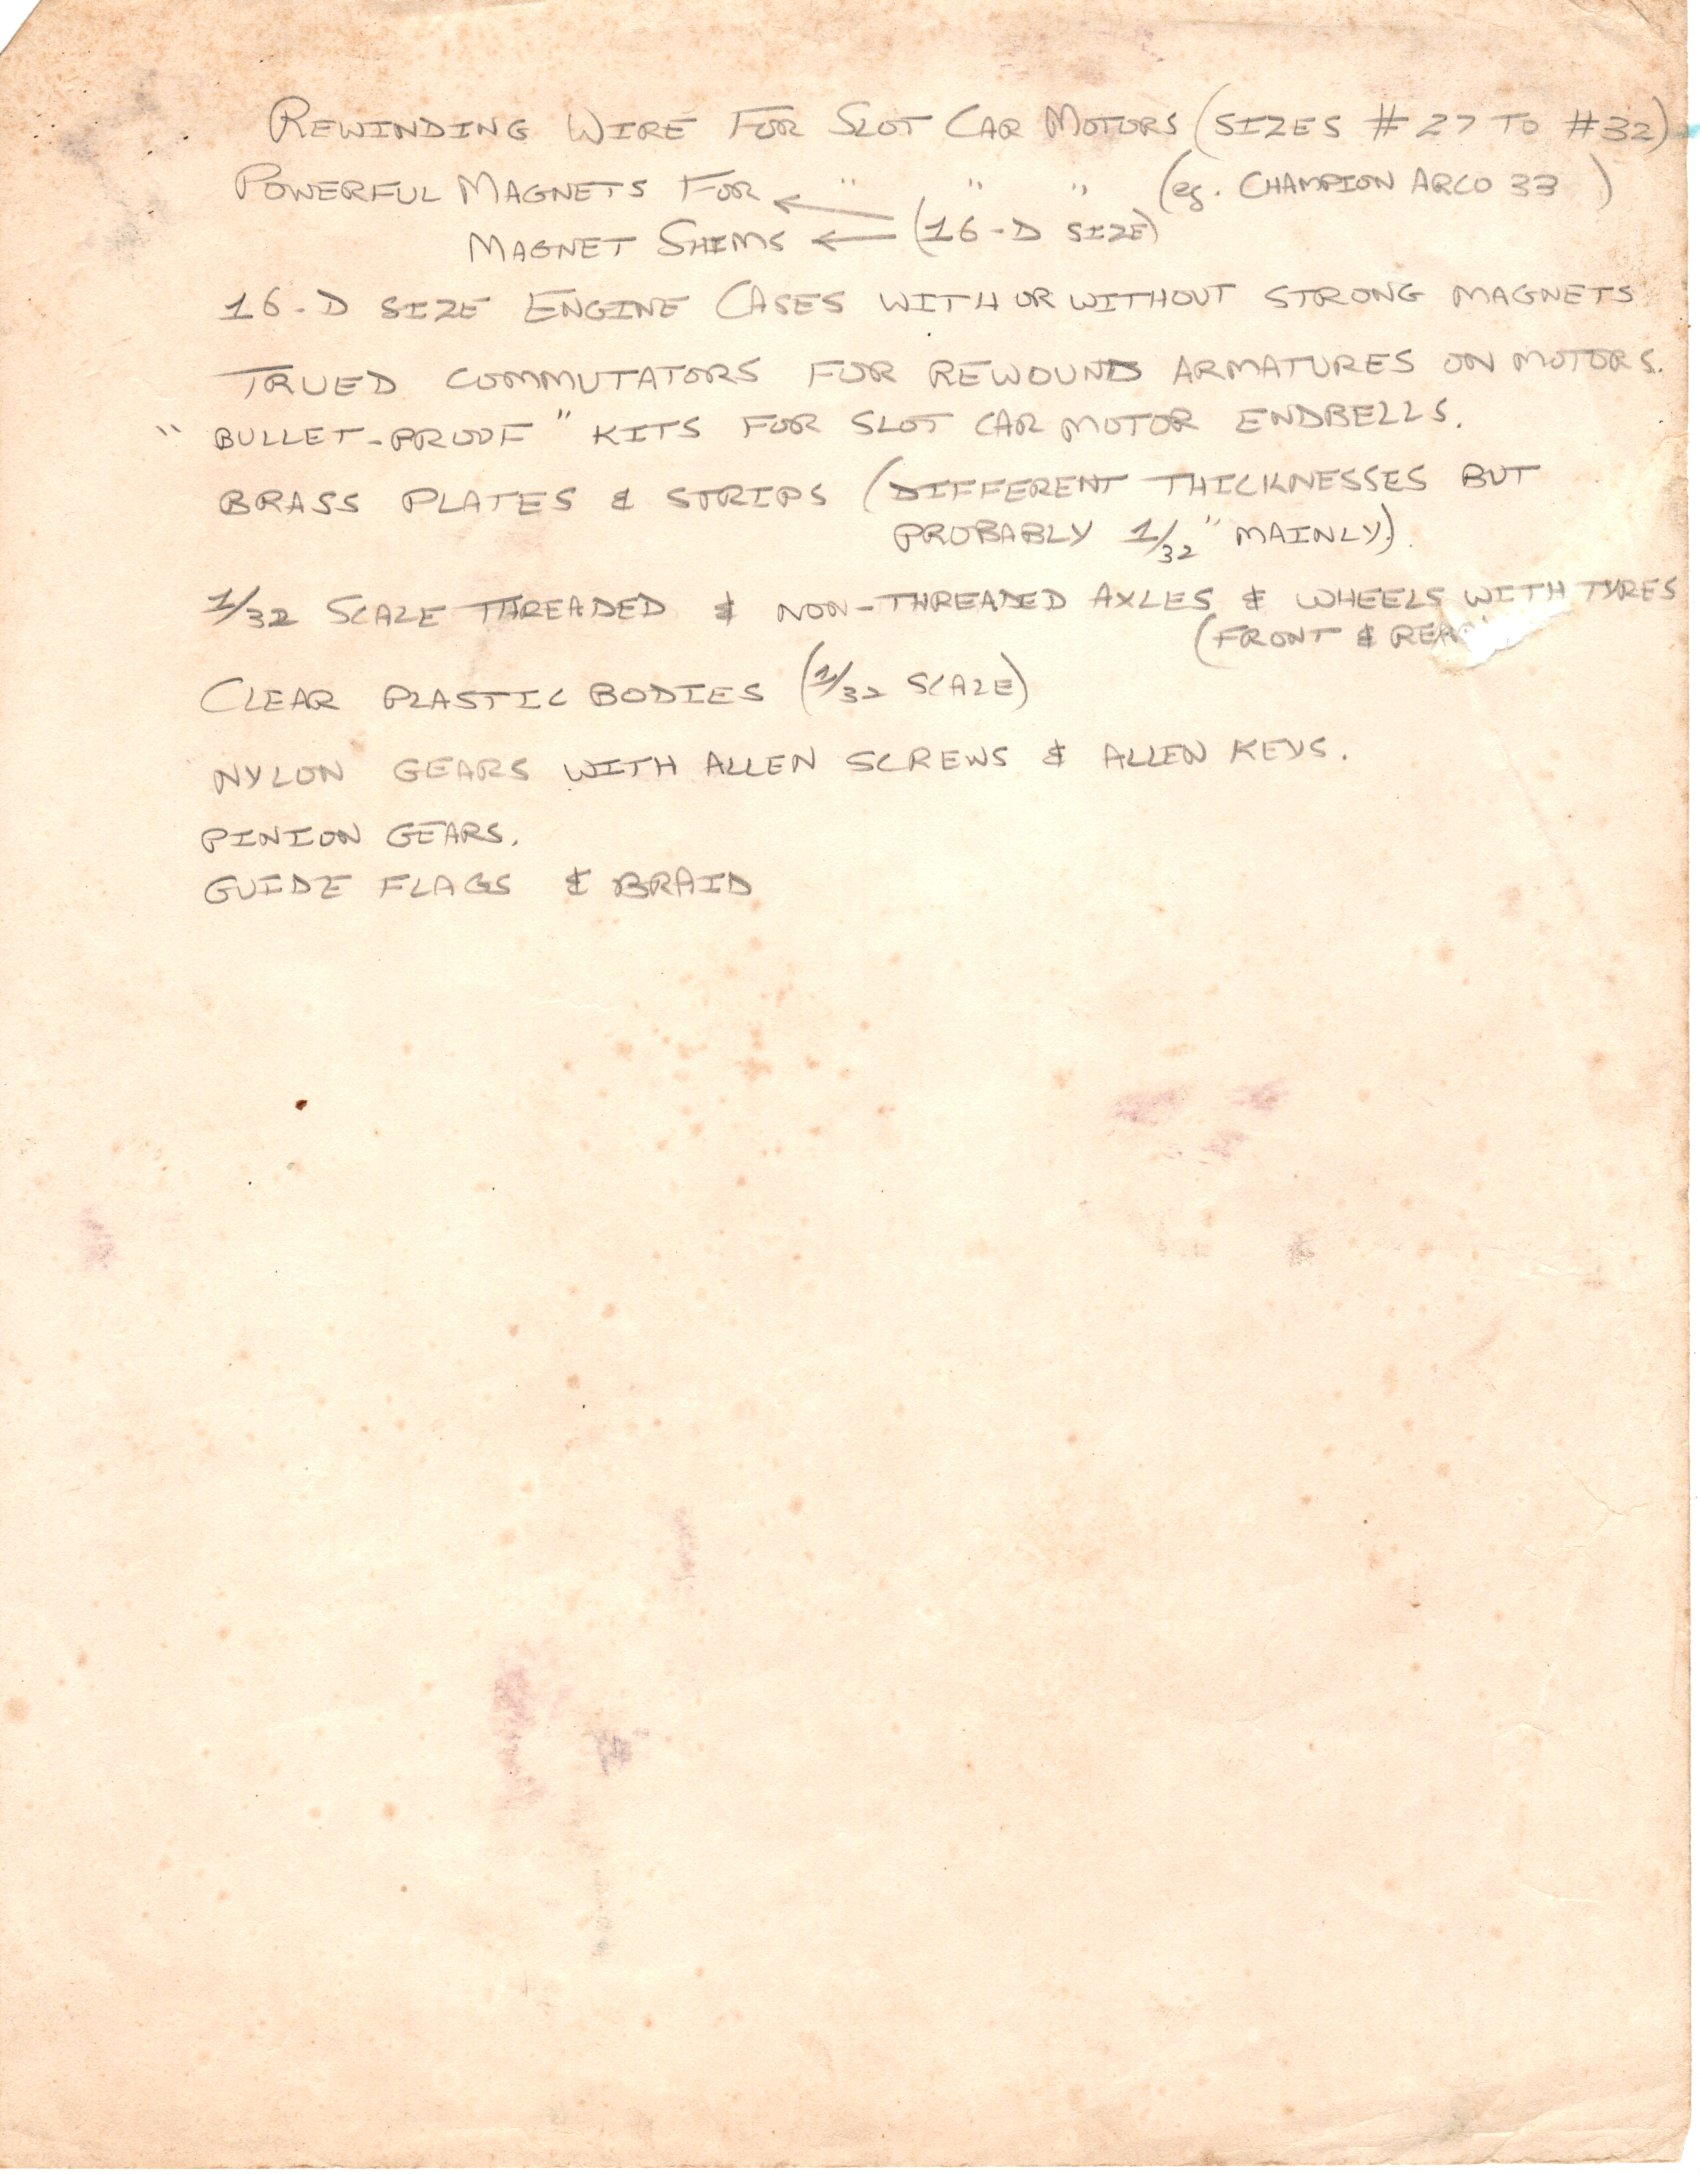 REWINDING WIRE FOR SLOT CAR MOTORS (SIZES #27 TO #32)
POWERFUL MAGNETS FOR ← " " " (eg. CHAMPION ARCO 33 )
MAGNET SHIMS ← (16-D SIZE)
16-D SIZE ENGINE CASES WITH OR WITHOUT STRONG MAGNETS
TRUED COMMUTATORS FOR REWOUND ARMATURES ON MOTORS.
"BULLET-PROOF" KITS FOR SLOT CAR MOTOR ENDBELLS.
BRASS PLATES & STRIPS (DIFFERENT THICKNESSES BUT
PROBABLY 1/32" MAINLY).
1/32 SCALE THREADED & NON-THREADED AXLES & WHEELS WITH TYRES
(FRONT & REAR
CLEAR PLASTIC BODIES (1/32 SCALE)
NYLON GEARS WITH ALLEN SCREWS & ALLEN KEYS.
PINION GEARS.
GUIDE FLAGS & BRAID